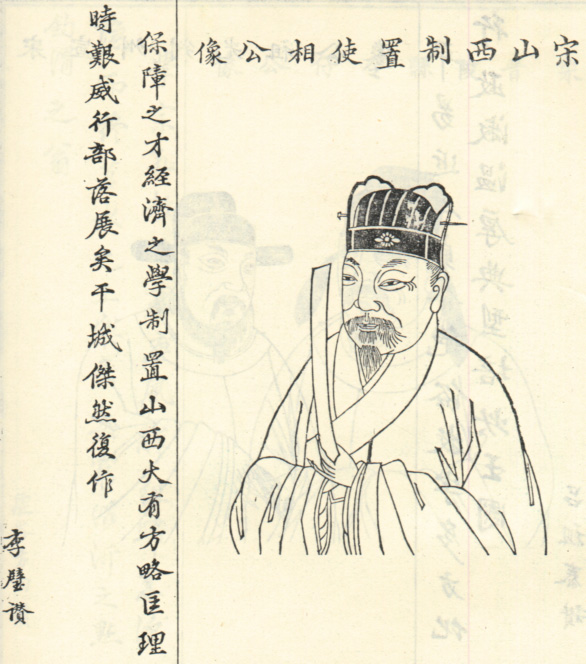 宋山西制置使相公像
保障之才經濟之學制置山西大有方略匡理
時艱威行部落展矣干城傑然復作
李璧讚